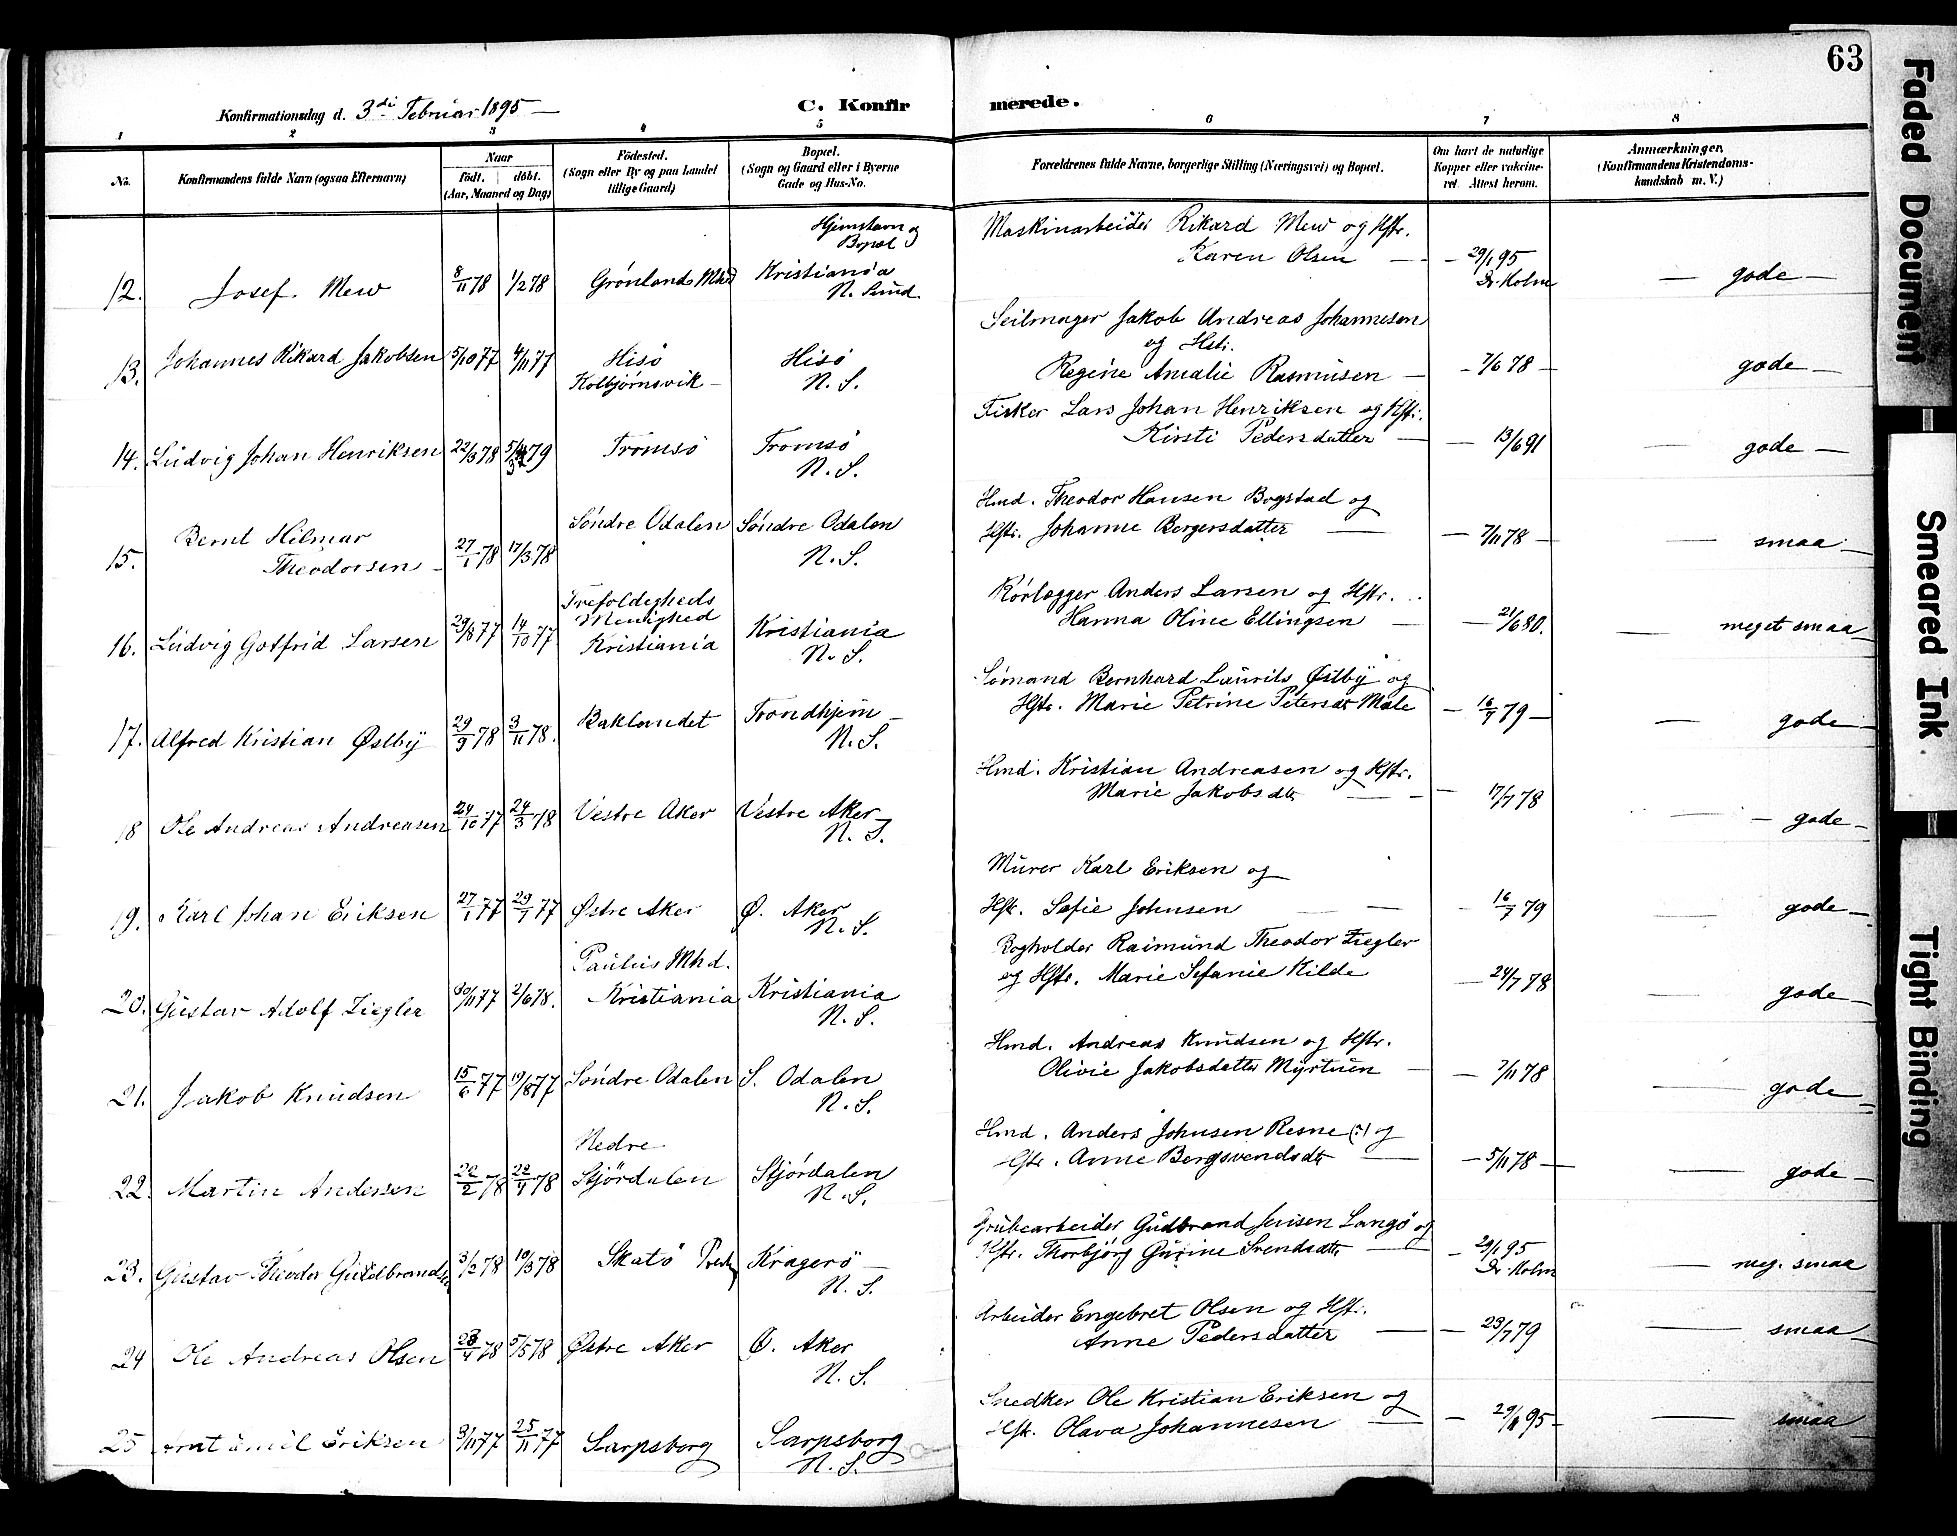 63
Konfirmationsdag d. 3di Februar 1895 —
C. Konfirmerede.
1 2 3 4 5 6 7 8
No.
Konfirmandens fulde Navn (ogsaa Efternavn)
Naar
født. døbt.
(Aar, Maaned og Dag)
Fødested.
(Sogn eller By og paa Landet
tillige Gaard)
Bopæl.
(Sogn og Gaard eller i Byerne
Gade og Hus-No.
Forældrenes fulde Navne, borgerlige Stilling (Næringsvei) og Bopæl.
Om havt de naturlige
Kopper eller vakcine-
ret. Attest herom.
Anmærkninger.
(Konfirmandens Kristendoms-
kundskab m. V.)
Hjemstavn og
Bopæl
12. Josef. Mew 8/11 78 1/2 78 Grønlands Mhd Kristiania
N. Sund.
Maskinarbeider Rikard Mew og Hstr.
Karen Olsen — 29/1 95
Dr. Holm — gode —
13. Johannes Rikard Jakobsen 5/10 77 4/11 77 Hisö
Kolbjørnsvik — Hisö
N. S.
Seilmager Jakob Andreas Johannesen
og Hstr.
Regine Amalie Rasmusen — 7/6 78 — gode —
14. Ludvig Johan Henriksen 22/3 78 79 Tromsö Tromsö
N. S.
Fisker Lars Johan Henriksen og Hstr.
Kirsti Pedersdatter — 13/6 91 — gode —
15. Bernt Hilmar
Theodorsen 27/1 78 17/3 78 Söndre Odalen Söndre Odalen
N. S.
Hmd. Theodor Hansen Bogstad og
Hstr. Johanne Bergersdatter — 7/11 78 — smaa —
16. Ludvig Gotfrid Larsen 29/8 77 14/10 77 Trefoldigheds
Menighed
Kristiania Kristiania
N. S.
Rörlægger Anders Larsen og Hstr.
Hanna Oline Ellingsen — 21/6 80. — meget smaa
17. Alfred Kristian Østby 29/9 78 3/11 78. Baklandet Trondhjem —
N. S.
Sömand Bernhard Laurits Østby og
Hstr. Marie Petrine Petersdt Møle — 16/7 79 — gode —
18 Ole Andreas Andreasen 24/10 77 24/3 78 Vestre Aker Vestre Aker —
N. S.
Hmd. Kristian Andreasen og Hstr.
Marie Jakobsdtr — 17/7 78 — gode —
19. Karl Johan Eriksen 27/1 77 29/7 77 Østre Aker Ø. Aker
N. S.
Murer Karl Eriksen og
Hstr. Sofie Johnsen — 16/7 79 — gode —
20. Gustav Adolf Ziegler 30/11 77 2/6 78. Paulus Mhd.
Kristiania Kristiania
N. S.
Bogholder Raimund Theodor Ziegler
og Hstr. Marie Stefanie Kilde — 24/7 78 — gode —
21. Jakob Knudsen 15/6 77 19/8 77 Söndre Odalen S. Odalen
N. S.
Hmd. Andreas Knudsen og Hstr.
Olivie Jakobsdatter Myrtuen — 7/11 78 — gode —
22. Martin Andersen 22/2 78 22/4 78 Nedre
Stjördalen Stjördalen
N. S.
Hmd. Anders Johnsen Resne (?) og
Hstr. Anne Bergsvendsdtr — 5/11 78 — gode —
23. Gustav Theodor Guldbrandsen 3/2 78 10/3 78 Skatö Kragerö —
N. S.
Grubearbeider Gudbrand Jensen Langö og
Hstr. Thorbjörg Gurine Svendsdtr — 29/1 95
Dr. Holm — meg. smaa
24 Ole Andreas Olsen 28/4 78 5/5 78 Østre Aker Ø. Aker
N. S.
Arbeider Engebret Olsen og Hstr.
Anne Pedersdatter — 23/7 79 — smaa —
25 Emil Eriksen 3/11 77 25/11 77 Sarpsborg Sarpsborg
N. S.
Snedker Ole Kristian Eriksen og
Hstr. Olava Johannesen — 29/1 95 — smaa —
Faded Document
Smeared Ink
Tight Binding